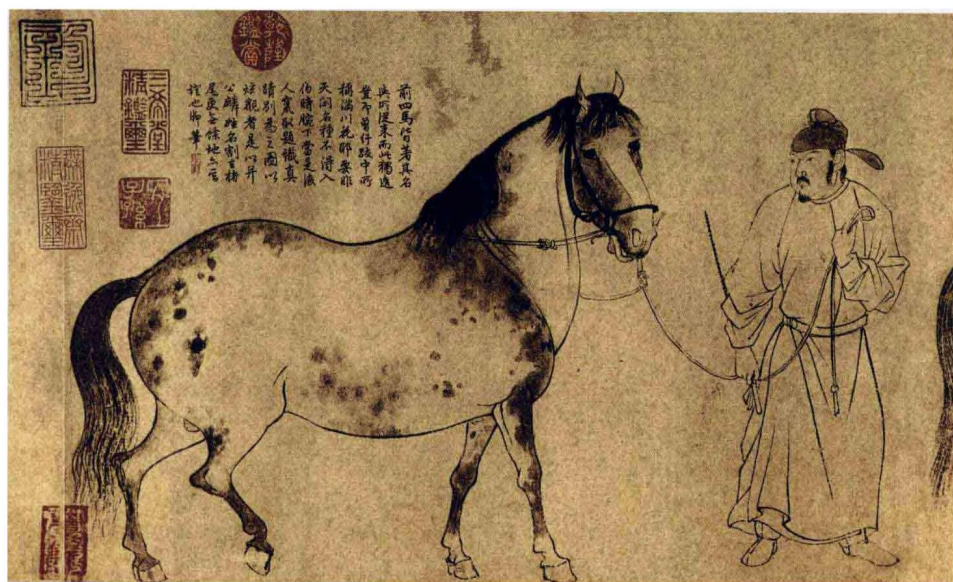 前四馬皆著其名
與所從來而此獨逸
豈即曾紆跋中所
稱滿川花耶要非
天閑名種不得入
伯時腕下當是後
人竄取題識真
蹟別為之圖以
炫觀者是以并
公麟姓名割去楮
尾更無餘地亦一
證也御筆
乾隆鑑賞
三希堂精鑑璽
宜子孫